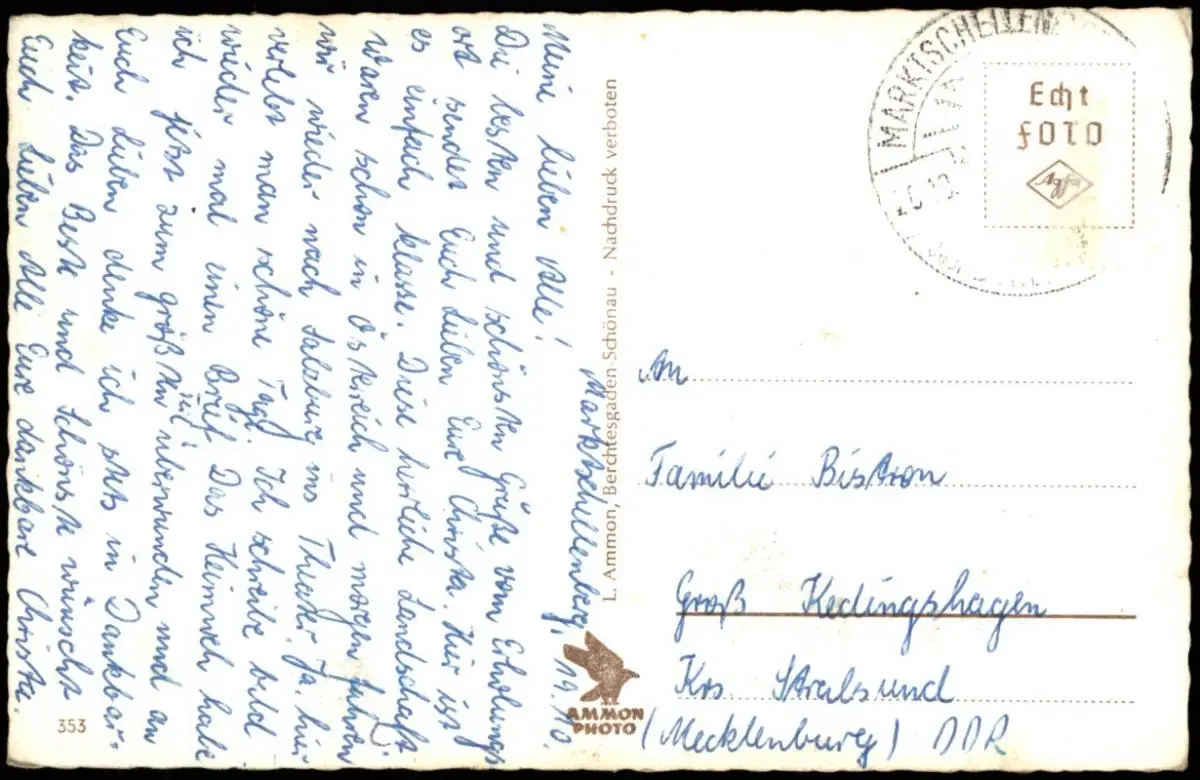 Marktschellenberg, 19.10.
Meine lieben Alle!
Die besten und schönsten Grüße vom Erholungs
ort sendet Euch Lieben Eure Christa. Hier ist
es einfach klasse. Diese herliche Landschaft
waren schon in Östereich und morgen fahren
wir wieder nach Salzburg ins Theater. Ja, hier
verlebt man schöne Tage. Ich schreibe bald
wieder mal einen Brief. Das Heimweh habe
ich jetzt zum größten Teil überwunden und an
Euch Lieben denke ich stets in Dankbar-
keit. Das Beste und Schönste wünscht
Euch Lieben Alle Eure dankbare Christa.
353
L. Ammon, Berchtesgaden-Schönau - Nachdruck verboten
AMMON
PHOTO
MARKTSCHELLEN
Echt
FOTO
Agfa
An
Familie Bistron
Groß Kedingshagen
Krs Stralsund
(Mecklenburg) DDR